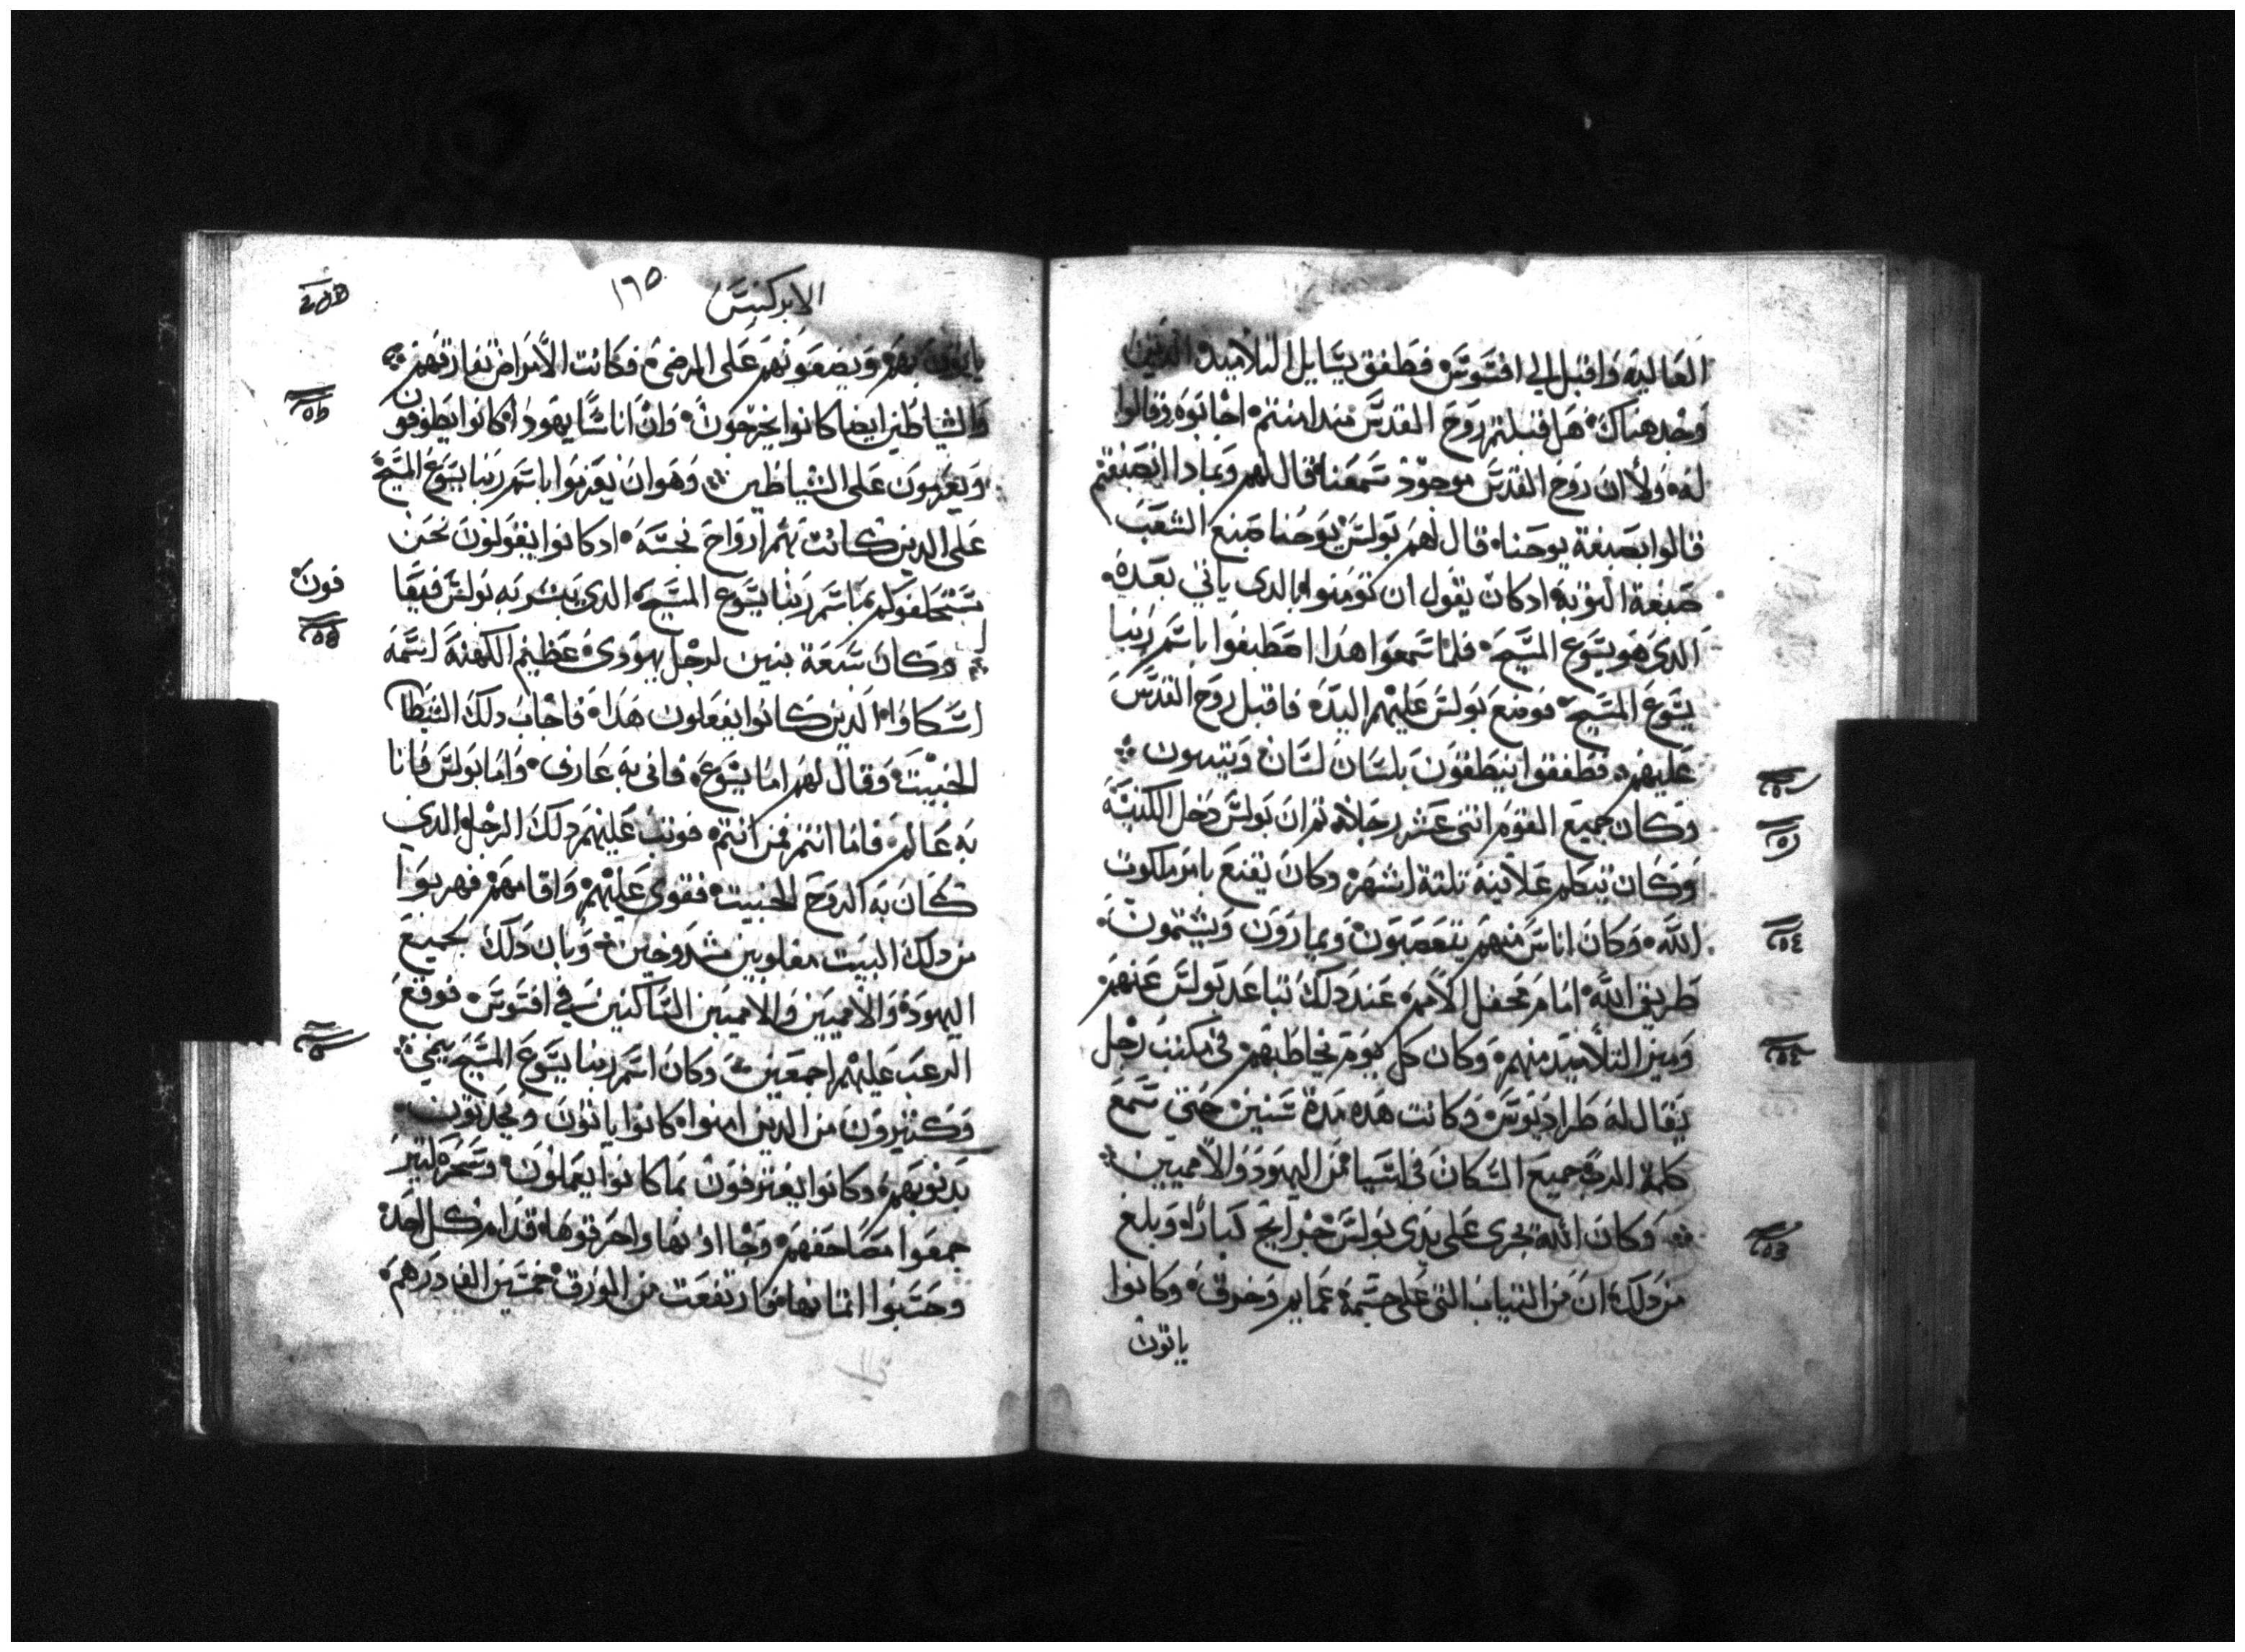 العاليه واقبل الي افسوس فطفق يسايل التلاميد الدين
وجد هناك هل قبلتم روح القدس مند امنتم اجابوه وقالوا
له ولا ان روح القدس موجود سمعنا قال لهم وبمادا انصبغتم
قالوا بصبغة يوحنا قال لهم بولس يوحنا صبغ الشعب
صبغة التوبه ادكان يقول ان تومنوا بالدى ياتي بعده
الدى هو يسوع المسيح فلما سمعوا هدا اصطبغوا باسم ربنا
يسوع المسيح فوضع بولس عليهم اليد فاقبل روح القدس
عليهم فطفقوا ينطقون بلسان لسان ويتنبون
وكان جميع القوم اتنى عشر رجلا تم ان بولس دخل الكنيسة
وكان يتكلم علانية تلتة اشهر وكان يقنع بامر ملكوت
الله وكان اناس منهم يتعصبون ويمارون ويشتمون
طريق الله امام محفل الامم عند دلك تباعد بولس عنهم
وميز التلاميد منهم وكان كل يوم يخاطبهم في مكتب رجل
يقال له طرادنوس وكانت هده مدة سنين حتي سمع
كلمة الرب جميع السكان في اسيا من اليهود والاميين
وكان الله يجرى على يدى بولس جرايح كبارا وبلغ
من دلك ان من التياب التي على جسمه عمايم وخرق وكانوا
ياتون
الابركسيس ١٦٥
ياتون بهم ويضعونهم على المرضى فكانت الامراض تفارقهم
والشياطين ايضا كانوا يخرجون وان اناسا يهودا كانوا يطوفون
ويعزمون على الشياطين وهوان يعزموا باسم ربنا يسوع المسيح
على الدين كانت بهم ارواح نجسه ادكانوا يقولون نحن
نستحلفكم باسم ربنا يسوع المسيح الدى يبشر به بولس
فون
وكان سبعة بنين لرجل يهودى عظيم الكهنة اسمه
اسكاوا الدين كانوا يفعلون هدا فاجاب دلك الشيطان
الخبيت وقال لهم اما يسوع فانى به عارف واما بولس فانا
به عالم فاما انتم فمن انتم فوتب عليهم دلك الرجل الدي
كان به الروح الخبيت فقوى عليهم واقامهم فهربوا
من دلك البيت مغلوبين مشدوخين وبان دلك لجميع
اليهود والاميين والاميين الساكنين في افسوس فوقع
الرعب عليهم اجمعين وكان اسم ربنا يسوع المسيح
وكتيرون من الدين امنوا كانوا ياتون ويحدتون
بدنوبهم وكانوا يعترفون بما كانوا يعملون وسحره كتير
جمعوا مصاحفهم وجااوا بها واحرقوها قدام كل احد
وحسبوا اتمانها فارتفعت من الورق خمسين الف درهم